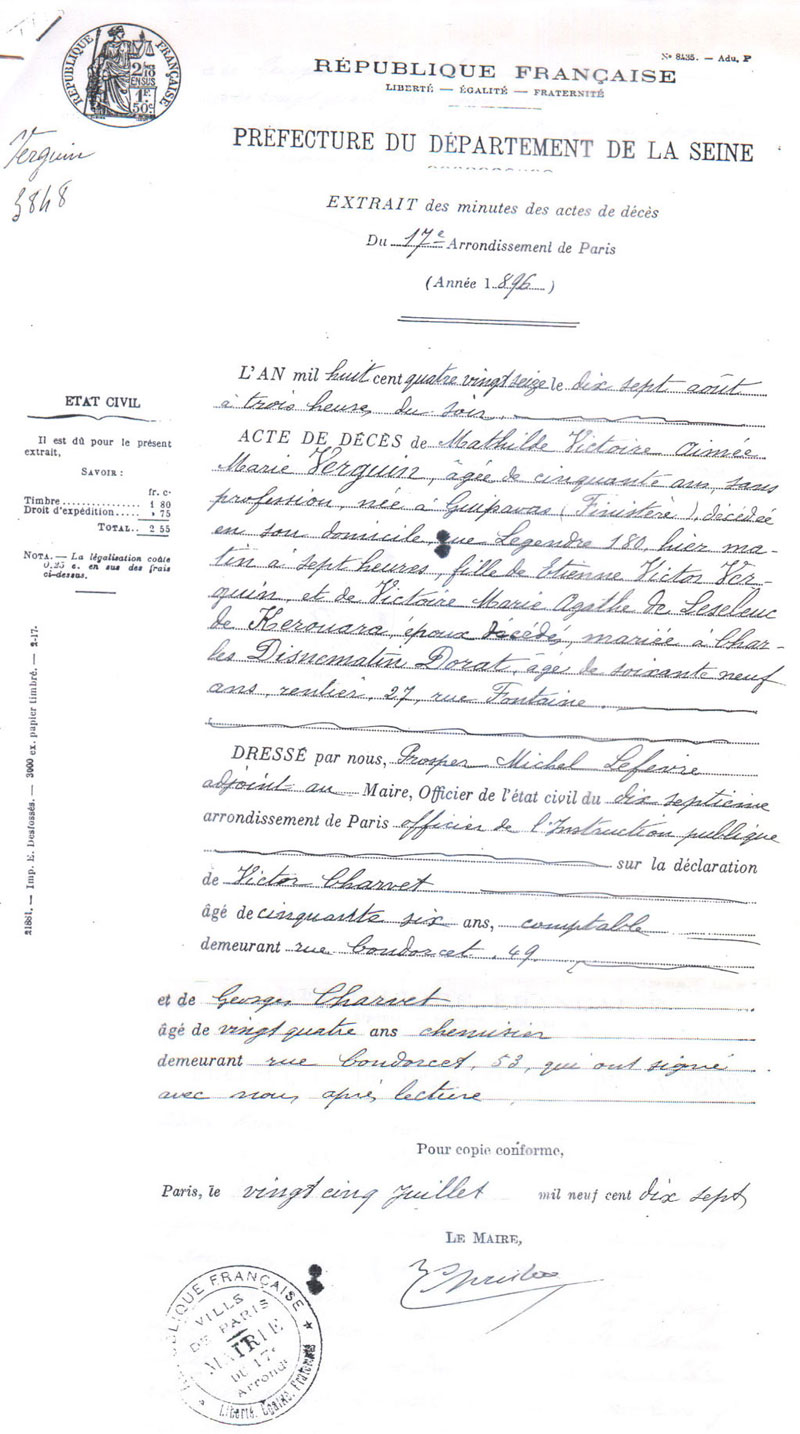 RÉPUBLIQUE FRANÇAISE
2/10 EN SUS
1F.
50c
Nº 8435. — Adu. P
RÉPUBLIQUE FRANÇAISE
LIBERTÉ — ÉGALITÉ — FRATERNITÉ
Verguin
3848
PRÉFECTURE DU DÉPARTEMENT DE LA SEINE
EXTRAIT des minutes des actes de décès
Du 17e Arrondissement de Paris
(Année 1896)
L'AN mil huit cent quatre vingt seize le dix sept août
à trois heures du soir
ACTE DE DÉCÈS de Mathilde Victoire Aimée
Marie Verguin, âgée de cinquante ans, sans
profession, née à Guipavas (Finistère), décédée
en son domicile, rue Legendre 180, hier ma-
tin à sept heures, fille de Etienne Victor Ver-
guin, et de Victoire Marie Agathe de Leseleuc
de Kerouara, époux décédés, mariée à Char-
les Disnematin Dorat, âgé de soixante neuf
ans, rentier, 27, rue Fontaine.
ETAT CIVIL
Il est dû pour le présent
extrait,
SAVOIR :
fr. c.
Timbre.............. 1 80
Droit d'expédition..... » 75
TOTAL.. 2 55
NOTA. — La légalisation coûte
0,25 c. en sus des frais
ci-dessus.
21881. — Imp. E. Desfossés. — 3000 ex. papier timbré. — 2-17.
DRESSÉ par nous, Prosper Michel Lefevre
adjoint au Maire, Officier de l'état civil du dix septième
arrondissement de Paris officier de l'Instruction publique
sur la déclaration
de Victor Charvet
âgé de cinquante six ans, comptable
demeurant rue Condorcet, 49
et de Georges Charvet
âgé de vingt quatre ans chemisier
demeurant rue Condorcet, 53, qui ont signé
avec nous après lecture
Pour copie conforme,
Paris, le vingt cinq Juillet mil neuf cent dix sept
LE MAIRE,
RÉPUBLIQUE FRANÇAISE
VILLE
DE PARIS
MAIRIE
DU 17e
Arrondt
Liberté, Égalité, Fraternité